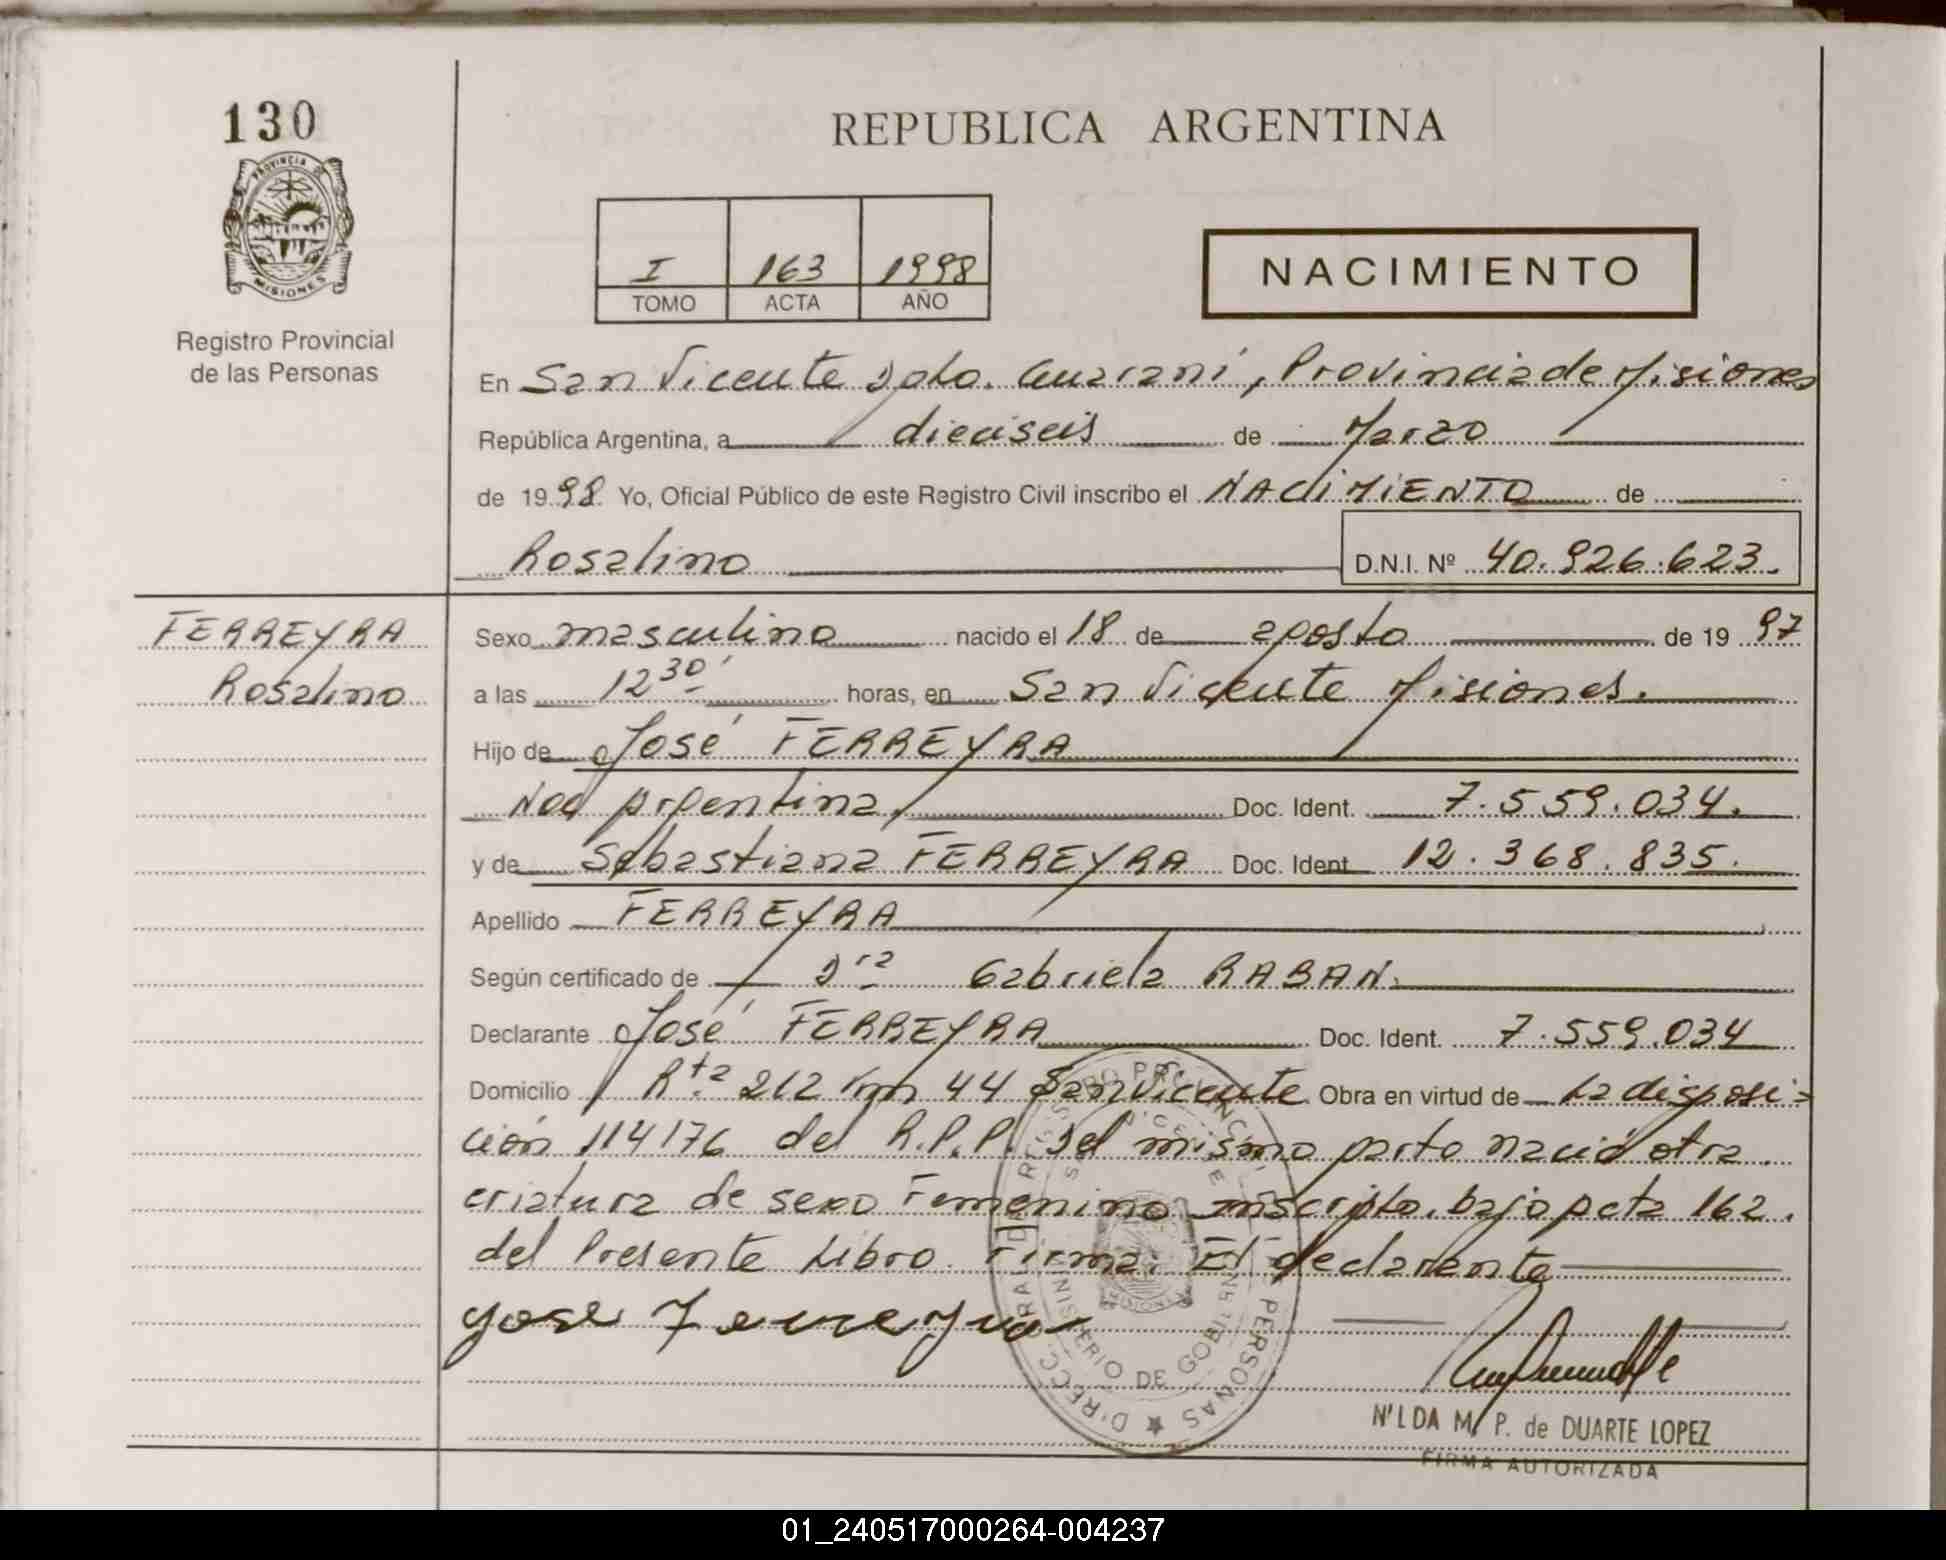 130
PROVINCIA DE
MISIONES
Registro Provincial
de las Personas
REPUBLICA ARGENTINA
I 163 1998
TOMO ACTA AÑO
NACIMIENTO
En San Vicente Dpto. Guarani, Provincia de Misiones
República Argentina, a dieciseis de Marzo
de 1998 Yo, Oficial Público de este Registro Civil inscribo el NACIMIENTO de
Rosalino D.N.I. Nº 40.926.623.
FERREYRA
Rosalino
Sexo masculino nacido el 18 de agosto de 1997
a las 12 30' horas, en San Vicente Misiones.
Hijo de José FERREYRA
Nac Argentina Doc. Ident. 7.559.034.
y de Sebastiana FERREYRA Doc. Ident. 12.368.835.
Apellido FERREYRA
Según certificado de Dra Gabriela RABAN.
Declarante José FERREYRA Doc. Ident. 7.559.034
Domicilio Rta 212 Km 44 San Vicente Obra en virtud de La disposi-
ción 114176 del R.P.P. Del mismo parto nació otra
criatura de sexo Femenino inscripta bajo acta 162.
del Presente Libro. Firma: El declarante
Jose Ferreyra
DIRECC. GRAL. DE REGISTRO PROVINCIAL DE PERSONAS
MINISTERIO DE GOBIERNO
MISIONES
NILDA M. P. de DUARTE LOPEZ
FIRMA AUTORIZADA
01_240517000264-004237